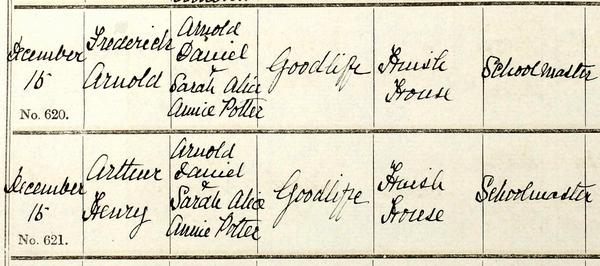 December
15
No. 620.
Frederick
Arnold
Arnold
Daniel
&
Sarah Alice
Annie Potter
Goodlife
Huish
House
Schoolmaster
December
15
No. 621.
Arthur
Henry
Arnold
Daniel
&
Sarah Alice
Annie Potter
Goodlife
Huish
House
Schoolmaster